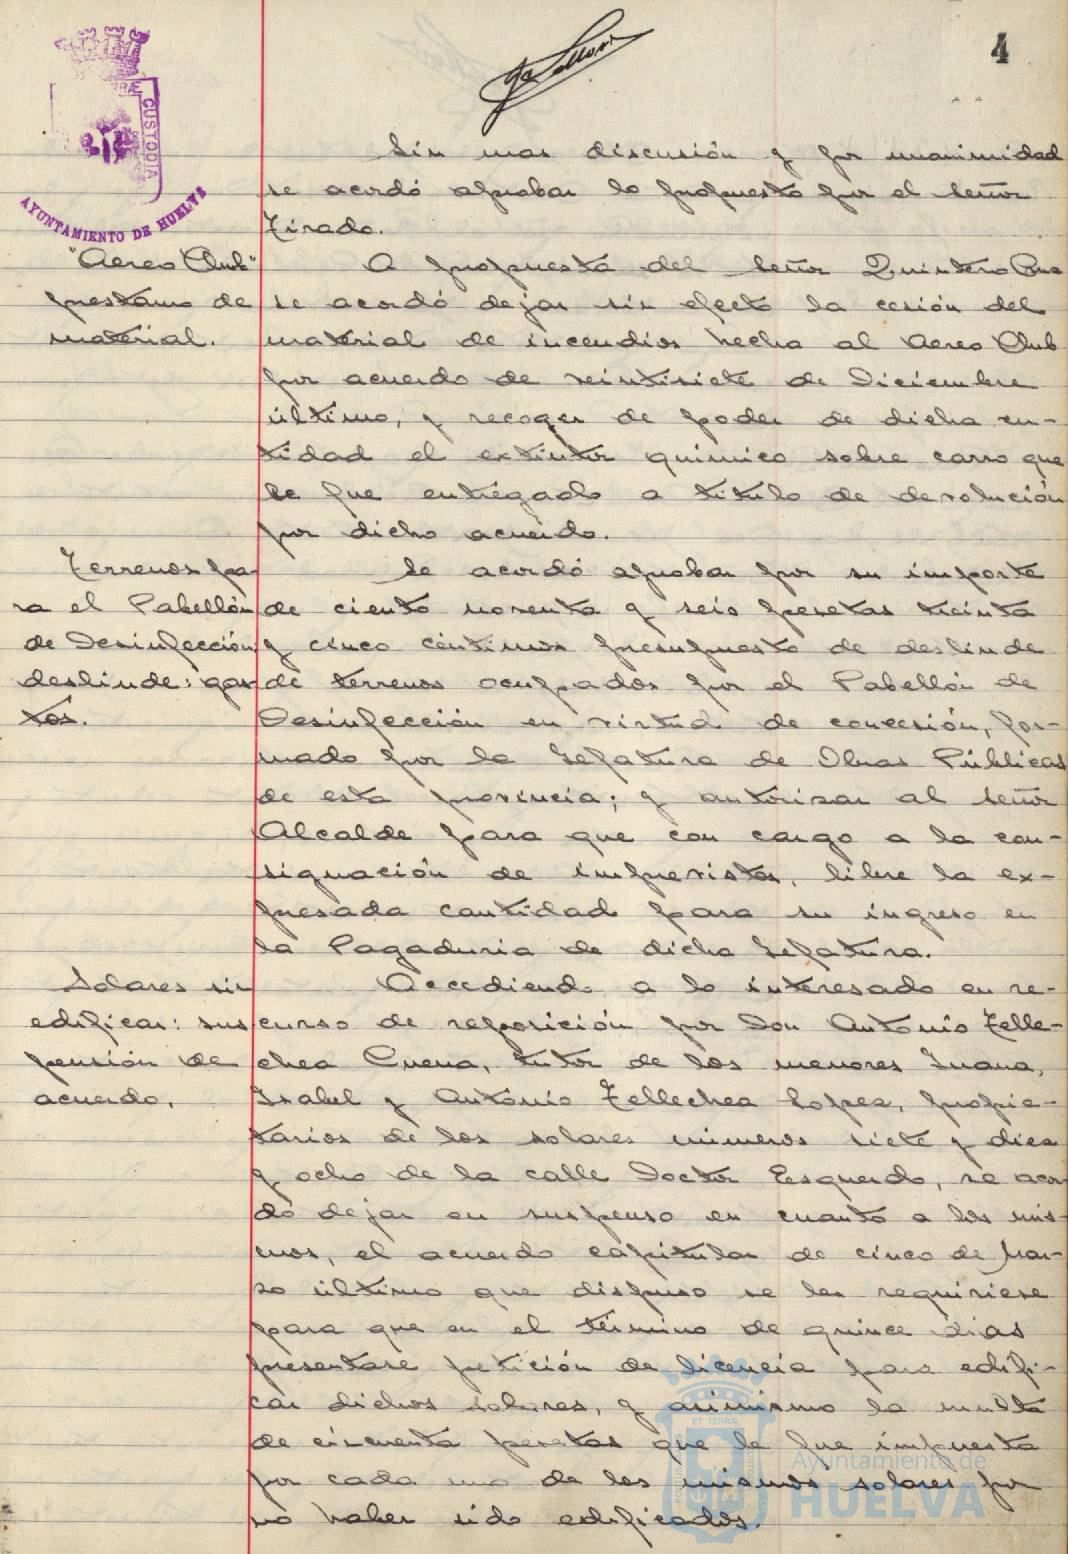 4
CUSTODIA
AYUNTAMIENTO DE HUELVA
Sin mas discusión y por unanimidad
se acordó aprobar lo propuesto por el señor
Tirado.
"Aereo Club"
prestamo de
material.
A propuesta del señor Quintero
se acordó dejar sin efecto la cesión del
material de incendios hecha al Aereo Club
por acuerdo de veintisiete de Diciembre
último, y recoger de poder de dicha en-
tidad el extintor quimico sobre carro que
le fue entregado a titulo de devolución
por dicho acuerdo.
Terrenos pa-
ra el Pabellón
de Desinfección
deslinde: gas-
tos.
Se acordó aprobar por su importe
de ciento noventa y seis pesetas treinta
y cinco céntimos presupuesto de deslinde
de terrenos ocupados por el Pabellón de
Desinfección en virtud de concesión, for-
mado por la Jefatura de Obras Públicas
de esta provincia; y autorizar al señor
Alcalde para que con cargo a la con-
signación de imprevistos, libre la ex-
presada cantidad para su ingreso en
la Pagaduria de dicha Jefatura.
Solares sin
edificar: sus
pensión de
acuerdo.
Accediendo a lo interesado en re-
curso de reposición por Don Antonio Telle-
chea Cuena, tutor de los menores Juana,
Isabel y Antonio Tellechea Lopez, propie-
tarios de los solares números siete y diez
y ocho de la calle Doctor Esquerdo, se acor-
dó dejar en suspenso en cuanto a los mis-
mos, el acuerdo capitular de cinco de Mar-
zo último que dispuso se les requiriese
para que en el término de quince dias
presentase petición de licencia para edifi-
car dichos solares, y asimismo la multa
de cincuenta pesetas que le fue impuesta
por cada uno de los mismos solares por
no haber sido edificados.
Ayuntamiento de
HUELVA